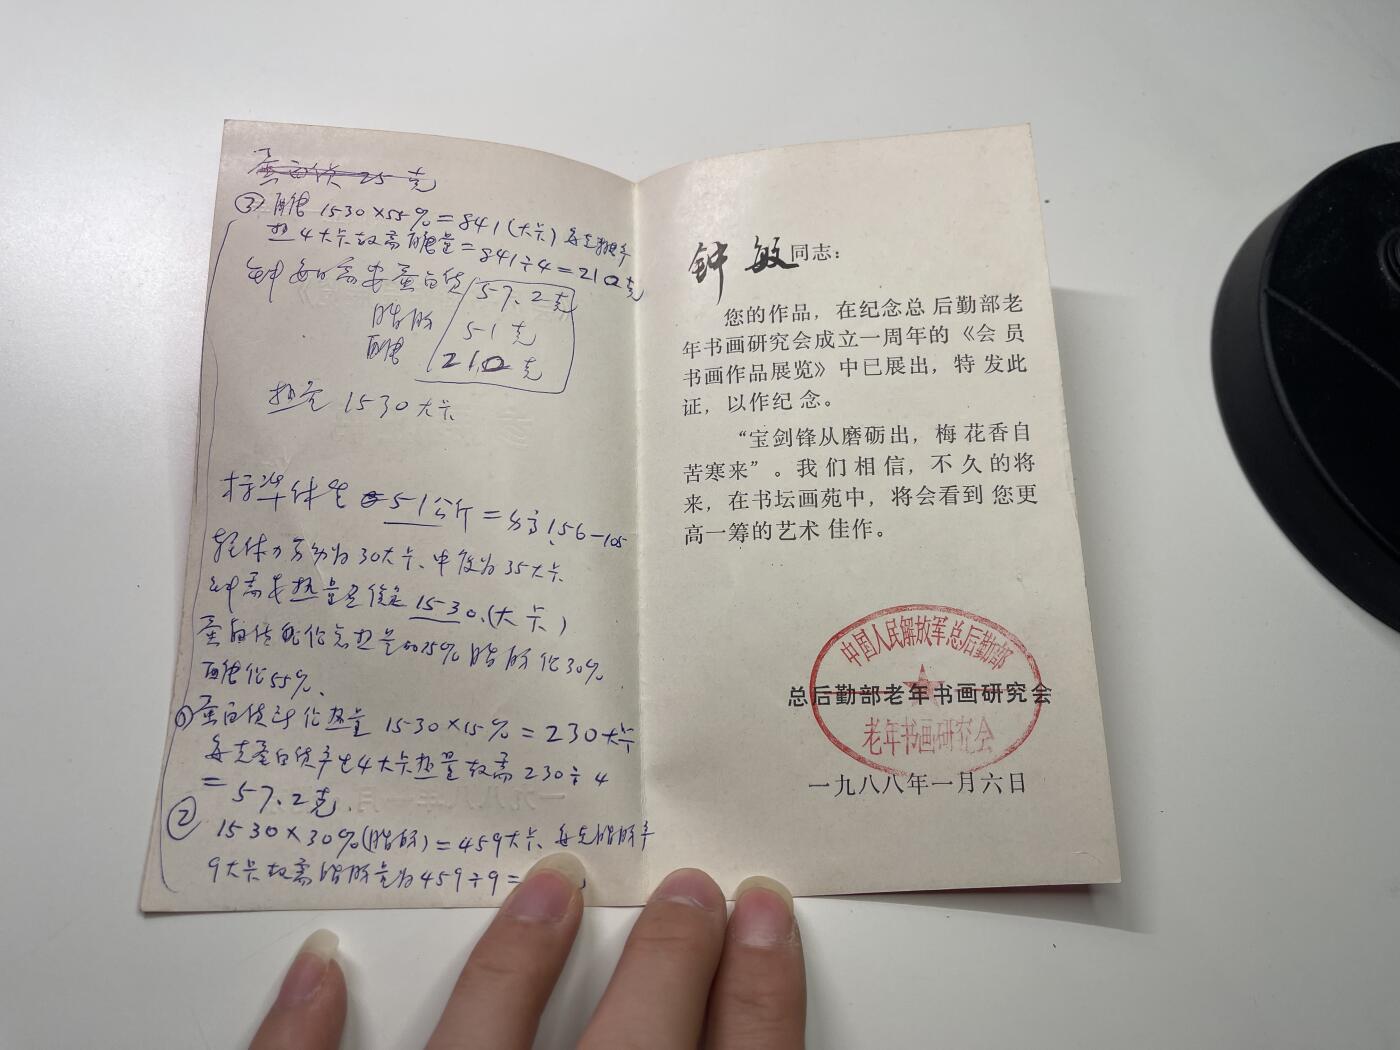 蛋白质 25克
③ 醣 1530×55%=841(大卡) 每克醣产
热4大卡故需醣量=841÷4=210克
钟每日需要蛋白质 57.2克
脂肪 51克
醣 210克
热量 1530大卡
标准体重 51公斤=身高156-105
轻体力劳动为30大卡、中度为35大卡
钟需要热量是 1530.(大卡)
蛋白质能占总热量的15% 脂肪占30%
醣占55%、
① 蛋白质占热量 1530×15%=230大卡
每克蛋白质产生4大卡热量故需230÷4
=57.2克.
② 1530×30%(脂肪)=459大卡、每克脂肪产
9大卡故需脂肪量为459÷9=
钟敏同志：
您的作品，在纪念总后勤部老
年书画研究会成立一周年的《会员
书画作品展览》中已展出，特发此
证，以作纪念。
“宝剑锋从磨砺出，梅花香自
苦寒来”。我们相信，不久的将
来，在书坛画苑中，将会看到您更
高一筹的艺术佳作。
中国人民解放军总后勤部
总后勤部老年书画研究会
老年书画研究会
一九八八年一月六日